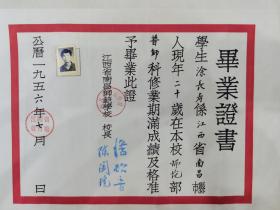 畢業證書
學生涂長壽係江西省南昌縣
人現年二十歲在本校師範部
普師科修業期滿成績及格准
予畢業此證
江西省南昌師範學校 校長
公曆一九五六年七月 日